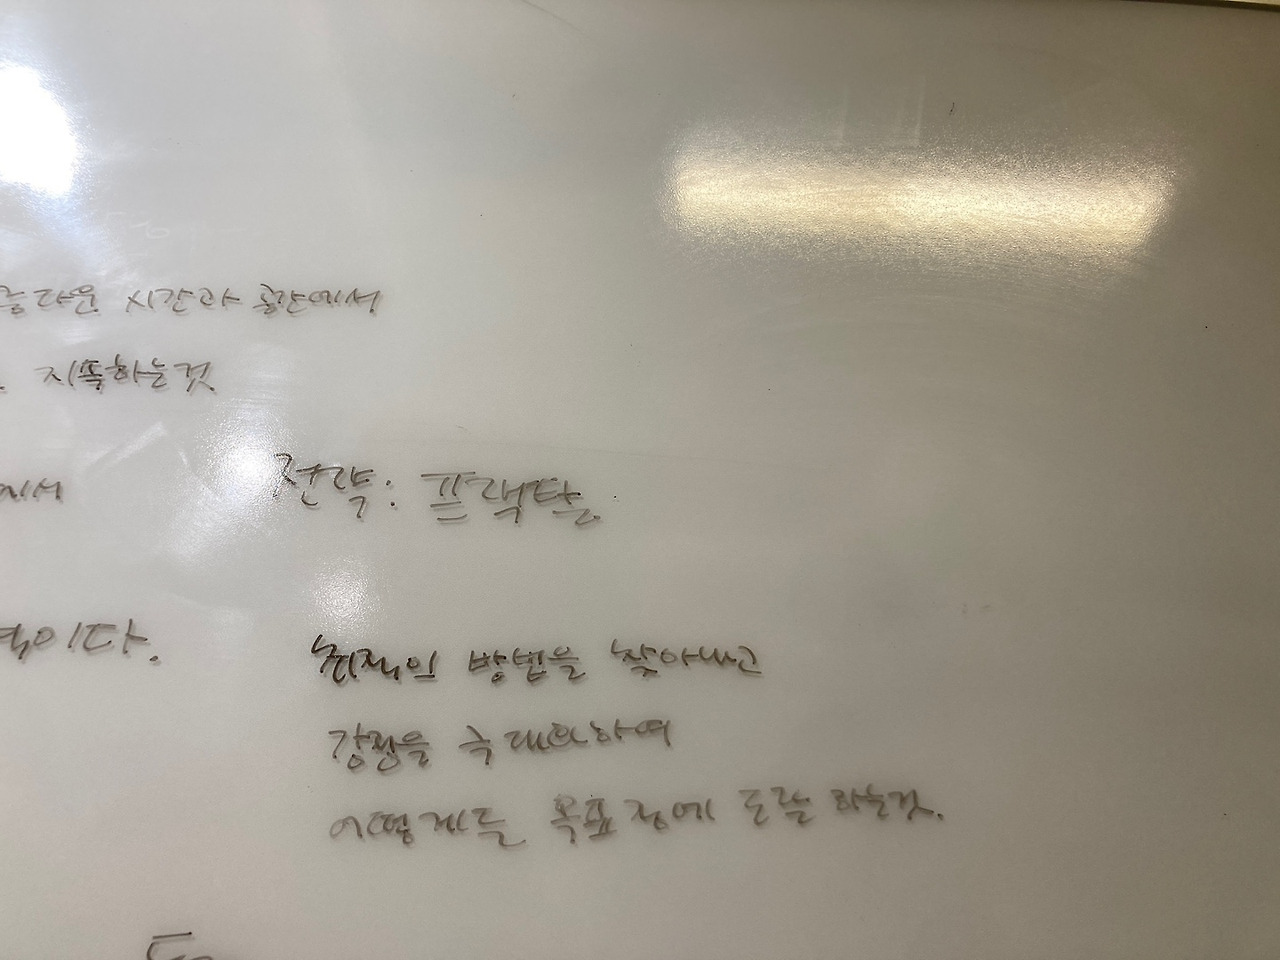 시간과 공간에서
지독하는것
에서
전략: 프랙탈.
이다.
최적의 방법을 찾아내고
강점을 극대화하여
어떻게든 목표점에 도달 하는것.